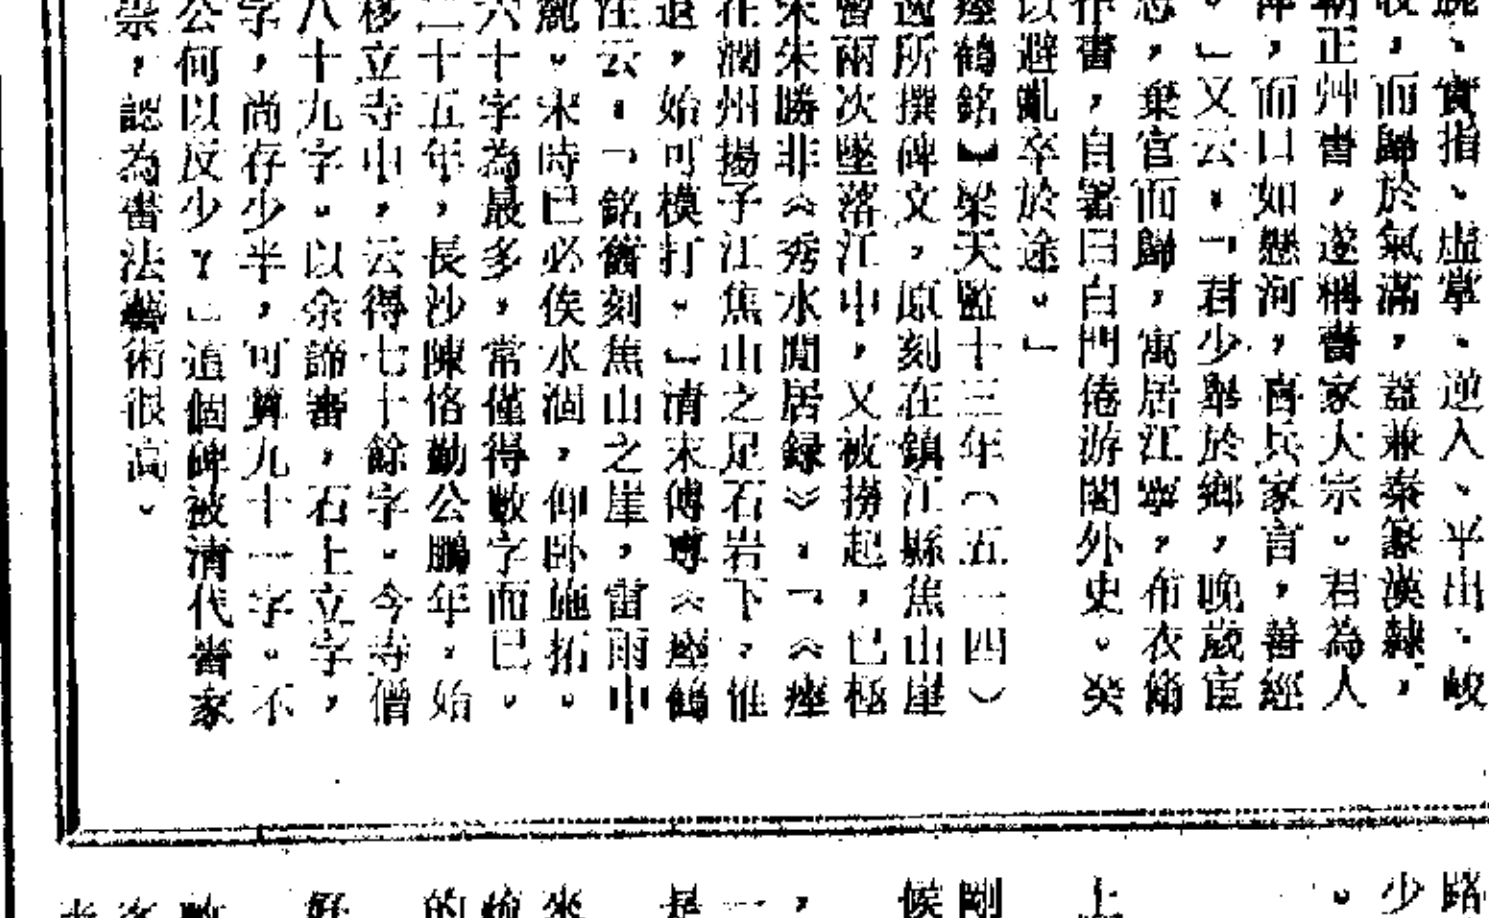 、實指、虛掌、逆入、平出、峻
收,而歸於氣滿,蓋兼秦篆漢隸,
正艸書,遂稱書家大宗。君為人
,而口如懸河,喜兵家言,善經
。」又云:「君少舉於鄉,晚歲宦
,棄官而歸,寓居江寧,布衣脩
作書,自署曰白門倦游閣外史。癸
以避亂卒於途。」
瘞鶴銘】梁天監十三年(五一四)
逸所撰碑文,原刻在鎮江縣焦山崖
曾兩次墜落江中,又被撈起,已極
宋朱勝非《秀水閒居録》:「《瘞
在潤州揚子江焦山之足石岩下,惟
退,始可模打。」清末傅尊《瘞鶴
注云:「銘舊刻焦山之崖,雷雨中
。宋時已必俟水涸,仰卧施拓。
六十字為最多,常僅得數字而已。
二十五年,長沙陳恪勤公鵬年,始
移立寺中,云得七十餘字。今寺僧
八十九字。以余諦審,石上立字,
字,尚存少半,可算九十一字。不
公何以反少?」這個碑被清代書家
崇,認為書法藝術很高。
路
少
。
上
剛
候
,
一
是
來
的
好